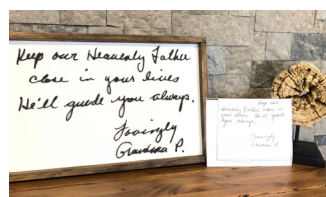 Keep our Heavenly Father
close in your lives
He'll guide you always.
Lovingly
Grandma P.
Keep our
Heavenly Father close in
your lives He'll guide
you always.
Lovingly
Grandma P.